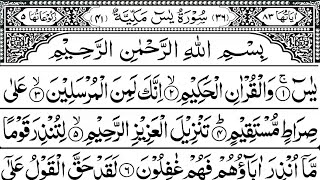 اٰيَاتُهَا ٨٣ (٣٦) سُوْرَةُ يٰسٓ مَكِّيَّةٌ (٤١) رُكُوْعَاتُهَا ٥
بِسْمِ اللّٰهِ الرَّحْمٰنِ الرَّحِيْمِ
يٰسٓ ۚ ﴿١﴾ وَالْقُرْاٰنِ الْحَكِيْمِ ﴿٢﴾ اِنَّكَ لَمِنَ الْمُرْسَلِيْنَ ﴿٣﴾ عَلٰى
صِرَاطٍ مُّسْتَقِيْمٍ ﴿٤﴾ تَنْزِيْلَ الْعَزِيْزِ الرَّحِيْمِ ﴿٥﴾ لِتُنْذِرَ قَوْمًا
مَّاۤ اُنْذِرَ اٰبَآؤُهُمْ فَهُمْ غٰفِلُوْنَ ﴿٦﴾ لَقَدْ حَقَّ الْقَوْلُ عَلٰۤى